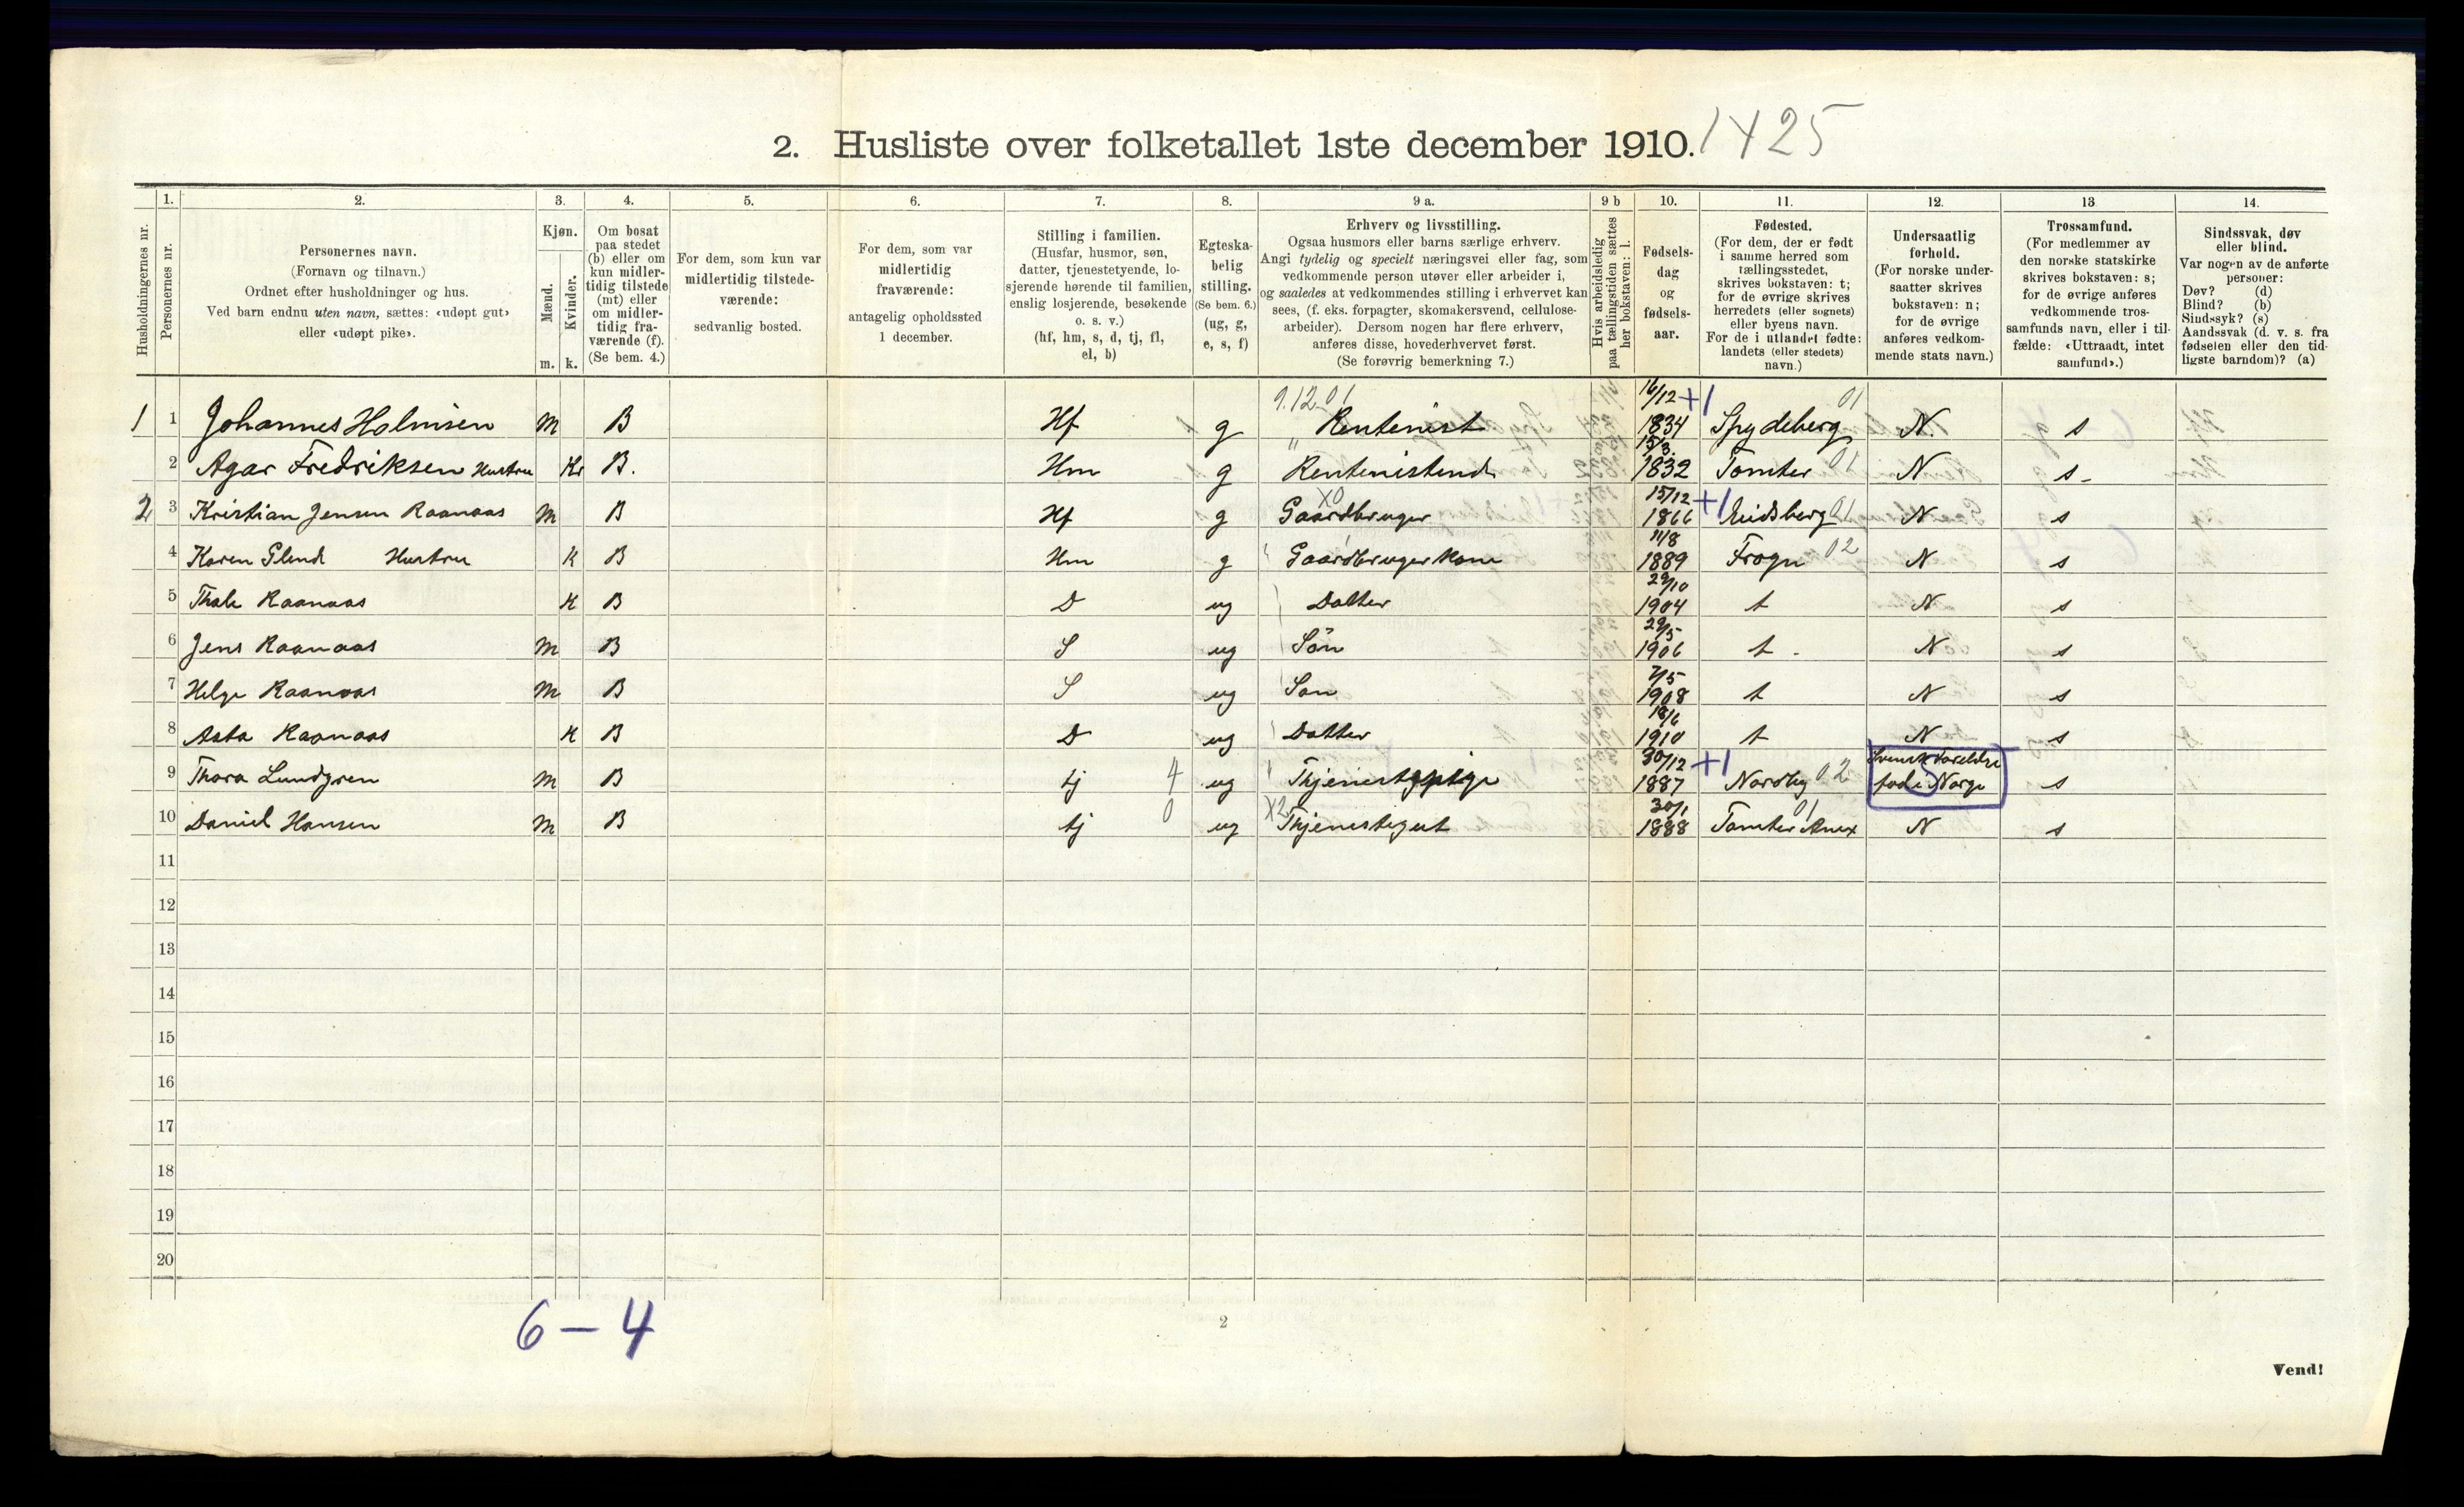 2. Husliste over folketallet 1ste december 1910. 1425
1. 2. 3. 4. 5. 6. 7. 8. 9 a. 9 b 10. 11. 12. 13 14.
Husholdningernes nr.
Personernes nr.
Personernes navn.
(Fornavn og tilnavn.)
Ordnet efter husholdninger og hus.
Ved barn endnu uten navn, sættes: «udøpt gut»
eller «udøpt pike».
Kjøn.
Mænd.
Kvinder.
m. k.
Om bosat
paa stedet
(b) eller om
kun midler-
tidig tilstede
(mt) eller
om midler-
tidig fra-
værende (f).
(Se bem. 4.)
For dem, som kun var
midlertidig tilstede-
værende:
sedvanlig bosted.
For dem, som var
midlertidig
fraværende:
antagelig opholdssted
1 december.
Stilling i familien.
(Husfar, husmor, søn,
datter, tjenestetyende, lo-
sjerende hørende til familien,
enslig losjerende, besøkende
o. s. v.)
(hf, hm, s, d, tj, fl,
el, b)
Egteska-
belig
stilling.
(Se bem. 6.)
(ug, g,
e, s, f)
Erhverv og livsstilling.
Ogsaa husmors eller barns særlige erhverv.
Angi tydelig og specielt næringsvei eller fag, som
vedkommende person utøver eller arbeider i,
og saaledes at vedkommendes stilling i erhvervet kan
sees, (f. eks. forpagter, skomakersvend, cellulose-
arbeider). Dersom nogen har flere erhverv,
anføres disse, hovederhvervet først.
(Se forøvrig bemerkning 7.)
Hvis arbeidsledig
paa tællingstiden sættes
her bokstaven: l.
Fødsels-
dag
og
fødsels-
aar.
Fødested.
(For dem, der er født
i samme herred som
tællingsstedet,
skrives bokstaven: t;
for de øvrige skrives
herredets (eller sognets)
eller byens navn.
For de i utlandet fødte:
landets (eller stedets)
navn.)
Undersaatlig
forhold.
(For norske under-
saatter skrives
bokstaven: n;
for de øvrige
anføres vedkom-
mende stats navn.)
Trossamfund.
(For medlemmer av
den norske statskirke
skrives bokstaven: s;
for de øvrige anføres
vedkommende tros-
samfunds navn, eller i til-
fælde: «Uttraadt, intet
samfund».)
Sindssvak, døv
eller blind.
Var nogen av de anførte
personer:
Døv? (d)
Blind? (b)
Sindssyk? (s)
Aandssvak (d. v. s. fra
fødselen eller den tid-
ligste barndom)? (a)
9.12.01 16/12 +1 01
1 1 Johannes Holmsen M B Hf g Rentenist 1834 Spydeberg N. s
2 Agar Fredriksen Hustru Kv B. Hm g " Rentenistend 15/3. 1832 Tomter 01 N s
2 3 Kristian Jensen Raanaas M B Hf g X0 Gaardbruger 15/12 1866 +1 Eidsberg 01 N s
4 Karen Glend Hustru K B Hm g Gaardbruger Kone 11/8 1889 Frogn 02 N s
5 Thale Raanaas K B D ug Datter 29/10 1904 t N s
6 Jens Raanaas M B S ug Sön 29/5 1906 t N s
7 Helge Raanaas M B S ug Søn 7/5 1908 t N s
8 Asta Raanaas K B D ug Datter 18/6 1910 t N s
9 Thora Lundgren M B tj 4 ug Thjenestepige 30/12 1887 +1 Nordby 02 Svensk Foreldre föd i Norge S s
10 Daniel Hansen M B tj 0 ug X2 Thjenestegut 30/1 1888 Tomter Anex 01 N s
11
12
13
14
15
16
17
18
19
20
6 – 4
2
Vend!